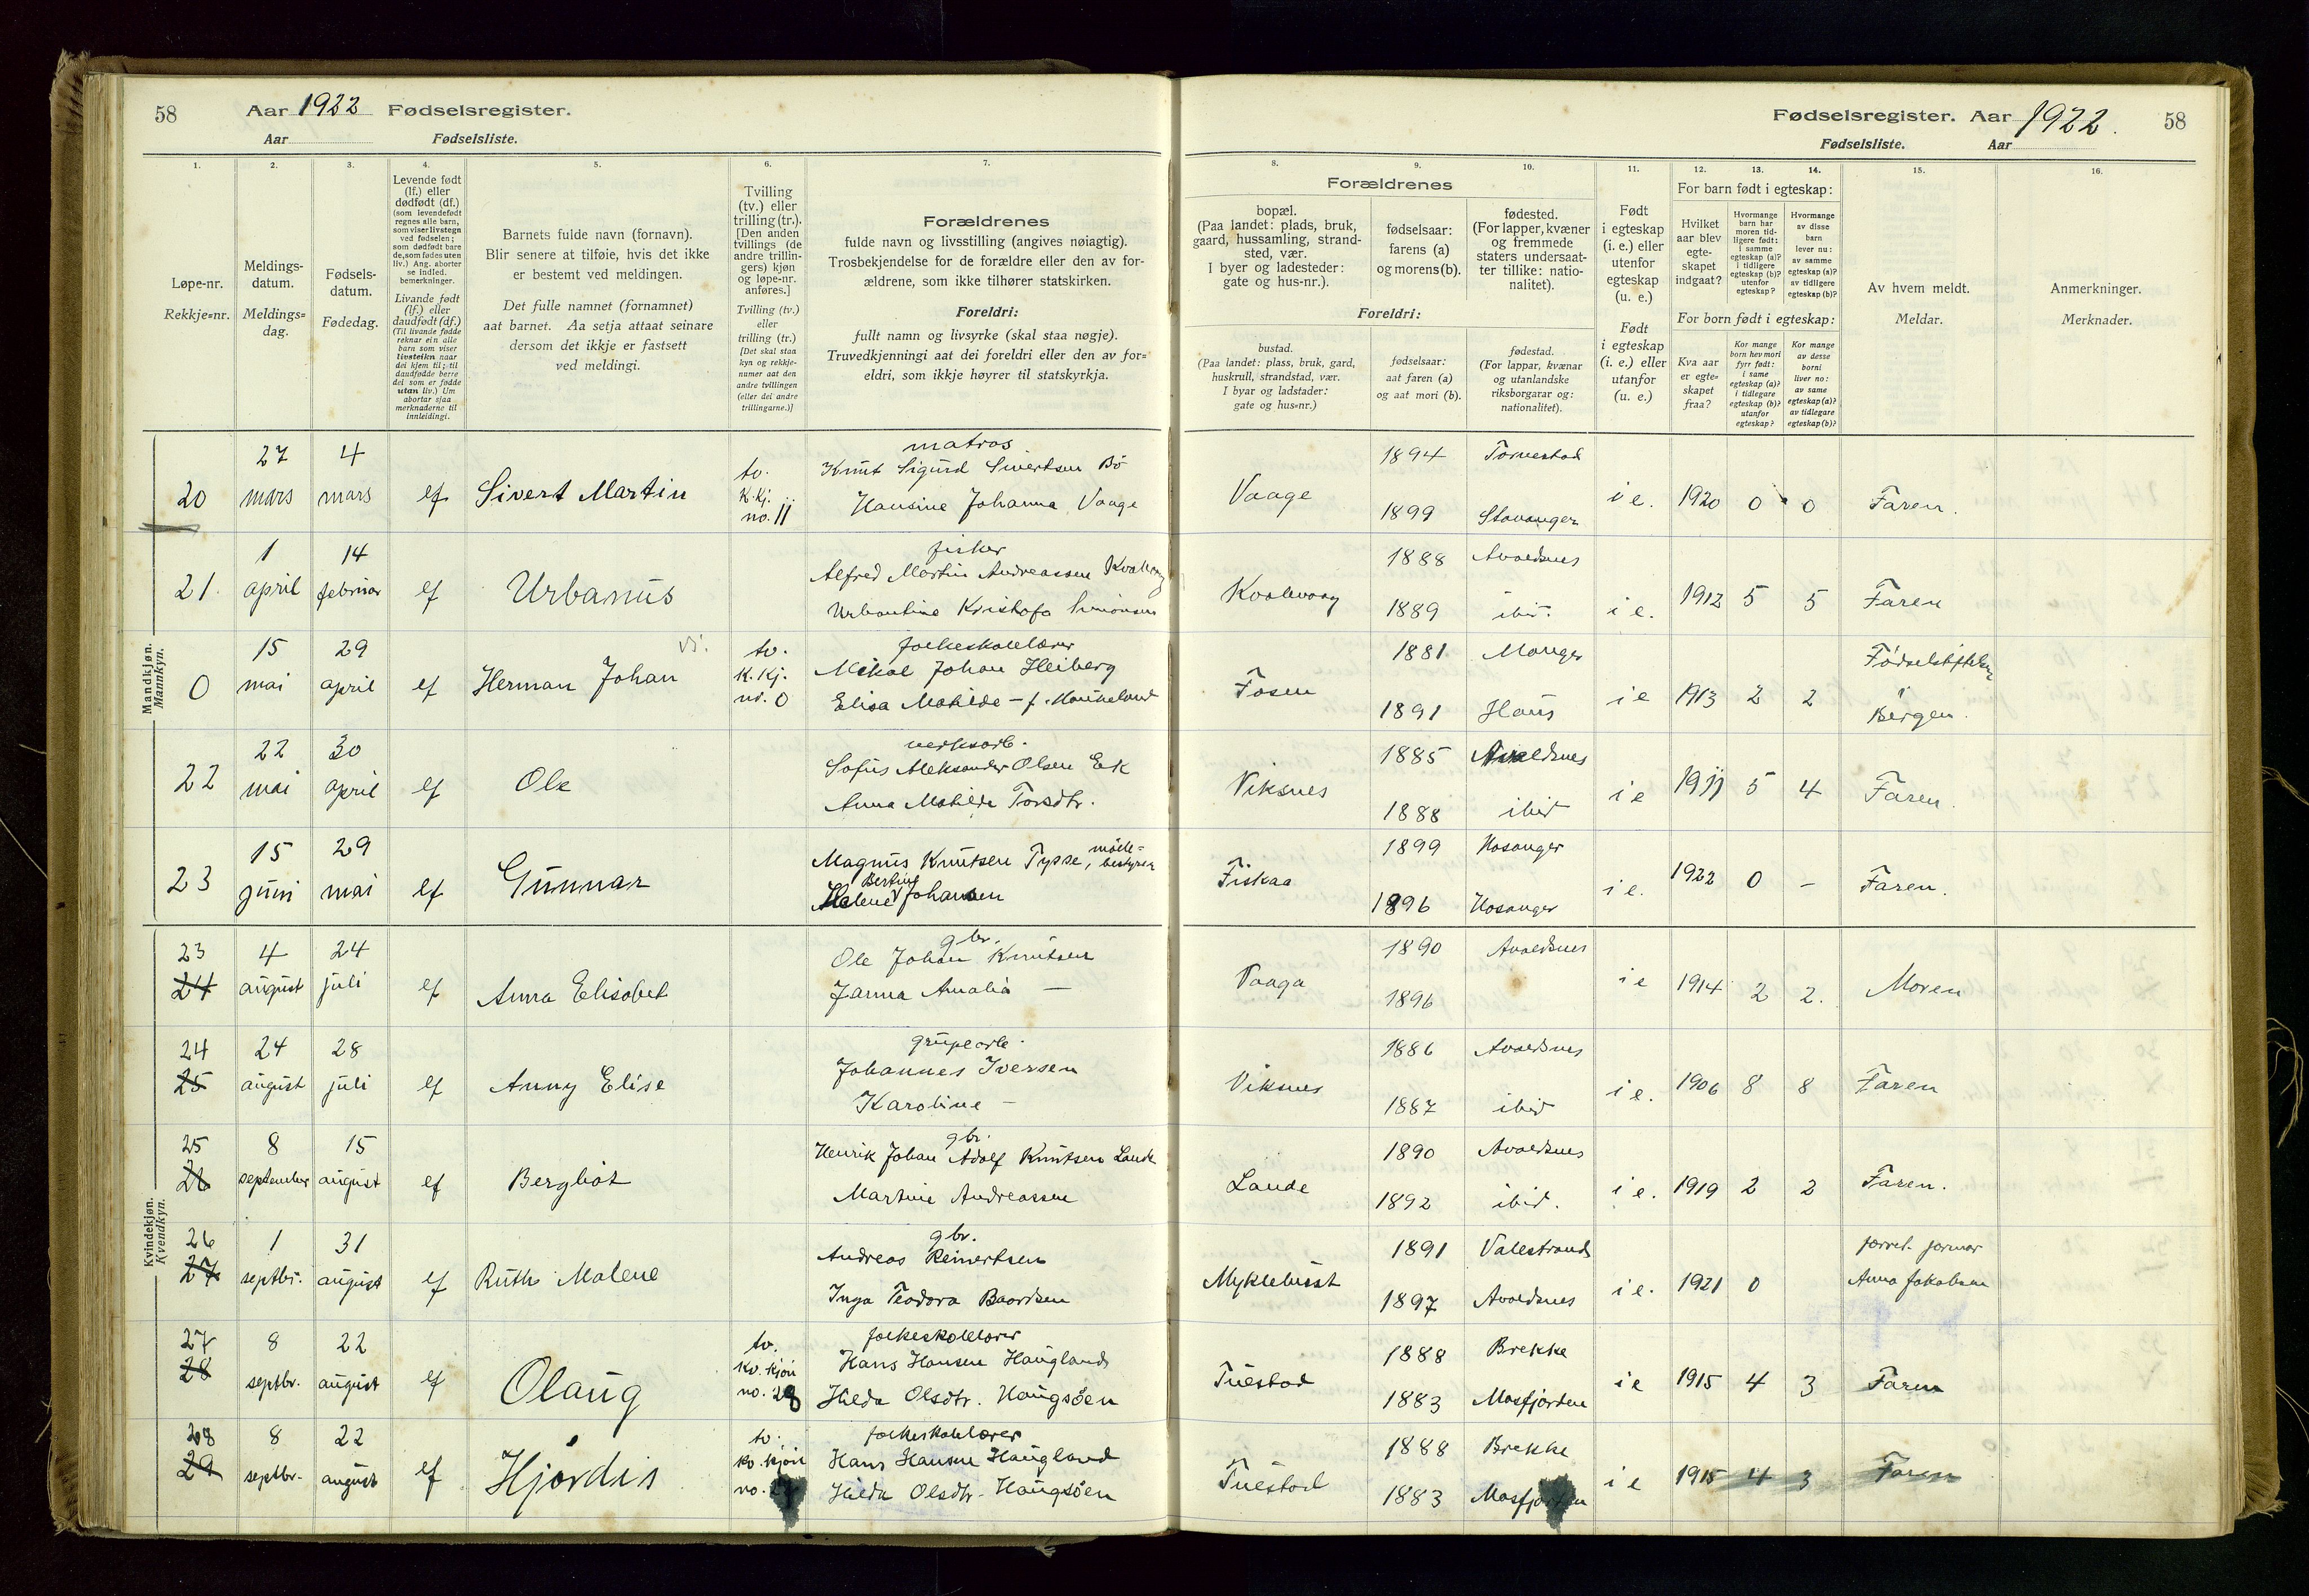 58
Aar 1922 Fødselsregister.
Aar Fødselsliste.
1. 2. 3. 4. 5. 6. 7.
Løpe-nr.
Rekkje=nr.
Meldings-
datum.
Meldings=
dag.
Fødsels-
datum.
Fødedag.
Levende født
(lf.) eller
dødfødt (df.)
(som levendefødt
regnes alle barn,
som viser livstegn
ved fødselen;
som dødfødt bare
de, som fødes uten
liv.) Ang. aborter
se indled.
bemerkninger.
Livande født
(lf.) eller
daudfødt (df.)
(Til livande fødde
reknar ein alle
barn som viser
livsteikn naar
dei kjem til; til
daudfødde berre
dei som er fødde
utan liv.) Um
abortar sjaa
merknaderne til
innleidingi.
Barnets fulde navn (fornavn).
Blir senere at tilføie, hvis det ikke
er bestemt ved meldingen.
Det fulle namnet (fornamnet)
aat barnet. Aa setja attaat seinare
dersom det ikkje er fastsett
ved meldingi.
Tvilling
(tv.) eller
trilling (tr.).
[Den anden
tvillings (de
andre trillin-
gers) kjøn
og løpe-nr.
anføres.]
Tvilling (tv.)
eller
trilling (tr.)
[Det skal staa
kyn og rekkje-
numer aat den
andre tvillingen
(eller dei andre
trillingarne.)]
Forældrenes
fulde navn og livsstilling (angives nøiagtig).
Trosbekjendelse for de forældre eller den av for-
ældrene, som ikke tilhører statskirken.
Foreldri:
fullt namn og livsyrke (skal staa nøgje).
Truvedkjenningi aat dei foreldri eller den av for=
eldri, som ikkje høyrer til statskyrkja.
Mandkjøn.
Mannkyn.
20 27 mars 4 mars lf Sivert Martin tv. K. kj. no. 11
matros
Knut Sigurd Sivertsen Bö
Hansine Johanna Vaage
21. 1 april 14 februar lf Urbanus
fisker
Alfred Martin Andreassen Kvalevaag
Urbantine Kristofa Simonsen
0 15 mai 29 april lf Herman Johan tv. K. kj. no. 0
folkeskolelærer
Mikal Johan Heiberg
Elisa Matilde – f.
22 22 mai 30 april lf Ole
verksarb.
Sofus Aleksander Olsen Eik
Anna Matilde Torsdtr.
23 15 juni 29 mai lf Gunnar
Magnus Knutsen Tysse, mölle-
bestyrer
Bertine
Malene Johansen
Kvindekjøn.
Kvendkyn.
23 24 4 august 24 juli lf Anna Elisabet
gbr.
Ole Johan Knutsen
Janna Amalia —
24 25 24 august 28 juli lf Anny Elise
grubearb.
Johannes Iversen
Karoline –
25 26 8 september 15 august lf Bergliot
gbr.
Henrik Johan Adolf Knutsen Lande
Martine Andreassen
26 27 1 septbr. 31 august lf Ruth Malene
gbr.
Andreas Reinertsen
Inga Teodora Baardsen
27 28 8 septbr. 22 august lf Olaug tv. kv. kjön no. 28
folkeskolelærer
Hans Hansen Haugland
Hilda Olsdtr. Haugsöen
28 29 8 septbr. 22 august lf Hjördis tv. kv. kjön no.
folkeskolelærer
Hans Hansen Haugland
Hilda Olsdtr. Haugsöen
Fødselsregister. Aar 1922. 58
Fødselsliste. Aar
8. 9. 10. 11. 12. 13. 14. 15. 16.
Forældrenes
bopæl.
(Paa landet: plads, bruk,
gaard, hussamling, strand-
sted, vær.
I byer og ladesteder:
gate og hus-nr.).
fødselsaar:
farens (a)
og morens (b).
fødested.
(For lapper, kvæner
og fremmede
staters undersaat-
ter tillike: natio-
nalitet).
Foreldri:
bustad.
(Paa landet: plass, bruk, gard,
huskrull, strandstad, vær.
I byar og ladstader:
gate og hus=nr.)
fødselsaar:
aat faren (a)
og aat mori (b).
fødestad.
(For lappar, kvænar
og utanlandske
riksborgarar og:
nationalitet).
Født
i egteskap
(i. e.) eller
utenfor
egteskap
(u. e.)
Født
i egteskap
(i. e.) eller
utanfor
(u. e.)
For barn født i egteskap:
Hvilket
aar blev
egte-
skapet
indgaat?
Hvormange
barn har
moren tid-
ligere født:
i samme
egteskap (a)?
i tidligere
egteskap (b)?
utenfor
egteskap?
Hvormange
av disse
barn
lever nu:
av samme
egteskap (a)?
av tidligere
egteskap (b)?
For born født i egteskap:
Kva aar
er egte=
skapet
fraa?
Kor mange
born hev mori
fyrr født:
i same
egteskap (a)?
i tidlegare
egteskap (b)?
utanfor
egteskap?
Kor mange
av desse
borni
liver no:
av same
egteskap (a)?
av tidlegare
egteskap (b)?
Av hvem meldt.
Meldar.
Anmerkninger.
Merknader.
Vaage 1894 Torvestad 1899 Stavanger i e. 1920 0 0 Faren.
Kvalevaag 1888 Avaldsnes 1889 ibid. i e. 1912 5 5 Faren
Fosen 1881 Manger 1891 Haus i e 1913 2 2 Födselstiftelsen i Bergen.
Viksnes 1885 Avaldsnes 1888 ibid i e 1911 5 4 Faren.
Fiskaa 1899 Hosanger 1896 Hosanger i e. 1922 0 – Faren.
Vaaga 1890 Avaldsnes 1896 i e 1914 2 2. Moren
Viksnes 1886 Avaldsnes 1887 ibid i e. 1906 8 8 Faren
Lande 1890 Avaldsnes 1892 ibid. i e. 1919 2 2 Faren.
Myklebust 1891 Valestrand 1897 Avaldsnes i e. 1921 0 Anna Jakobsen
Tuestad 1888 Brekke 1883 Masfjorden i e 1915 4 3 Faren
Tuestad 1888 Brekke 1883 Masfjorden i e 1915 4 3 Faren